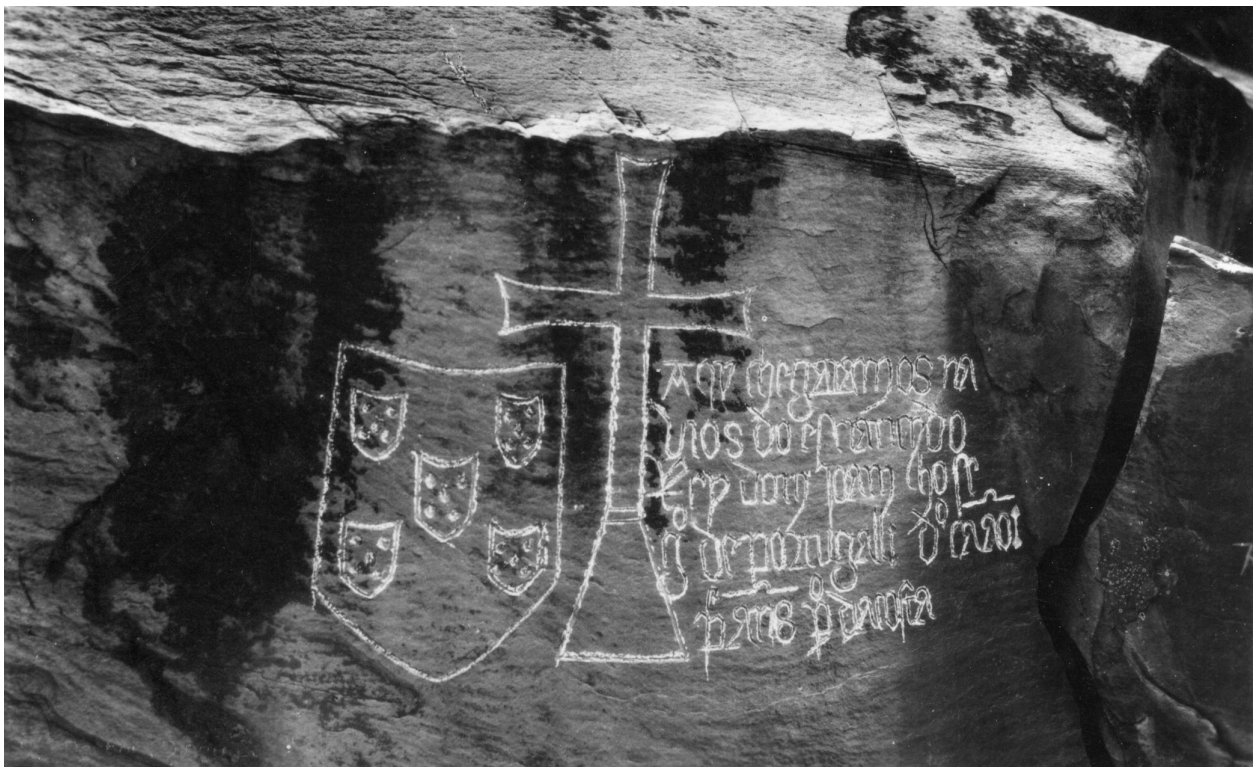 Aqy chegaram os na
vios do esclarecido
Rey dom joam ho se
gº de portugall dº caão
pº anes pº da costa